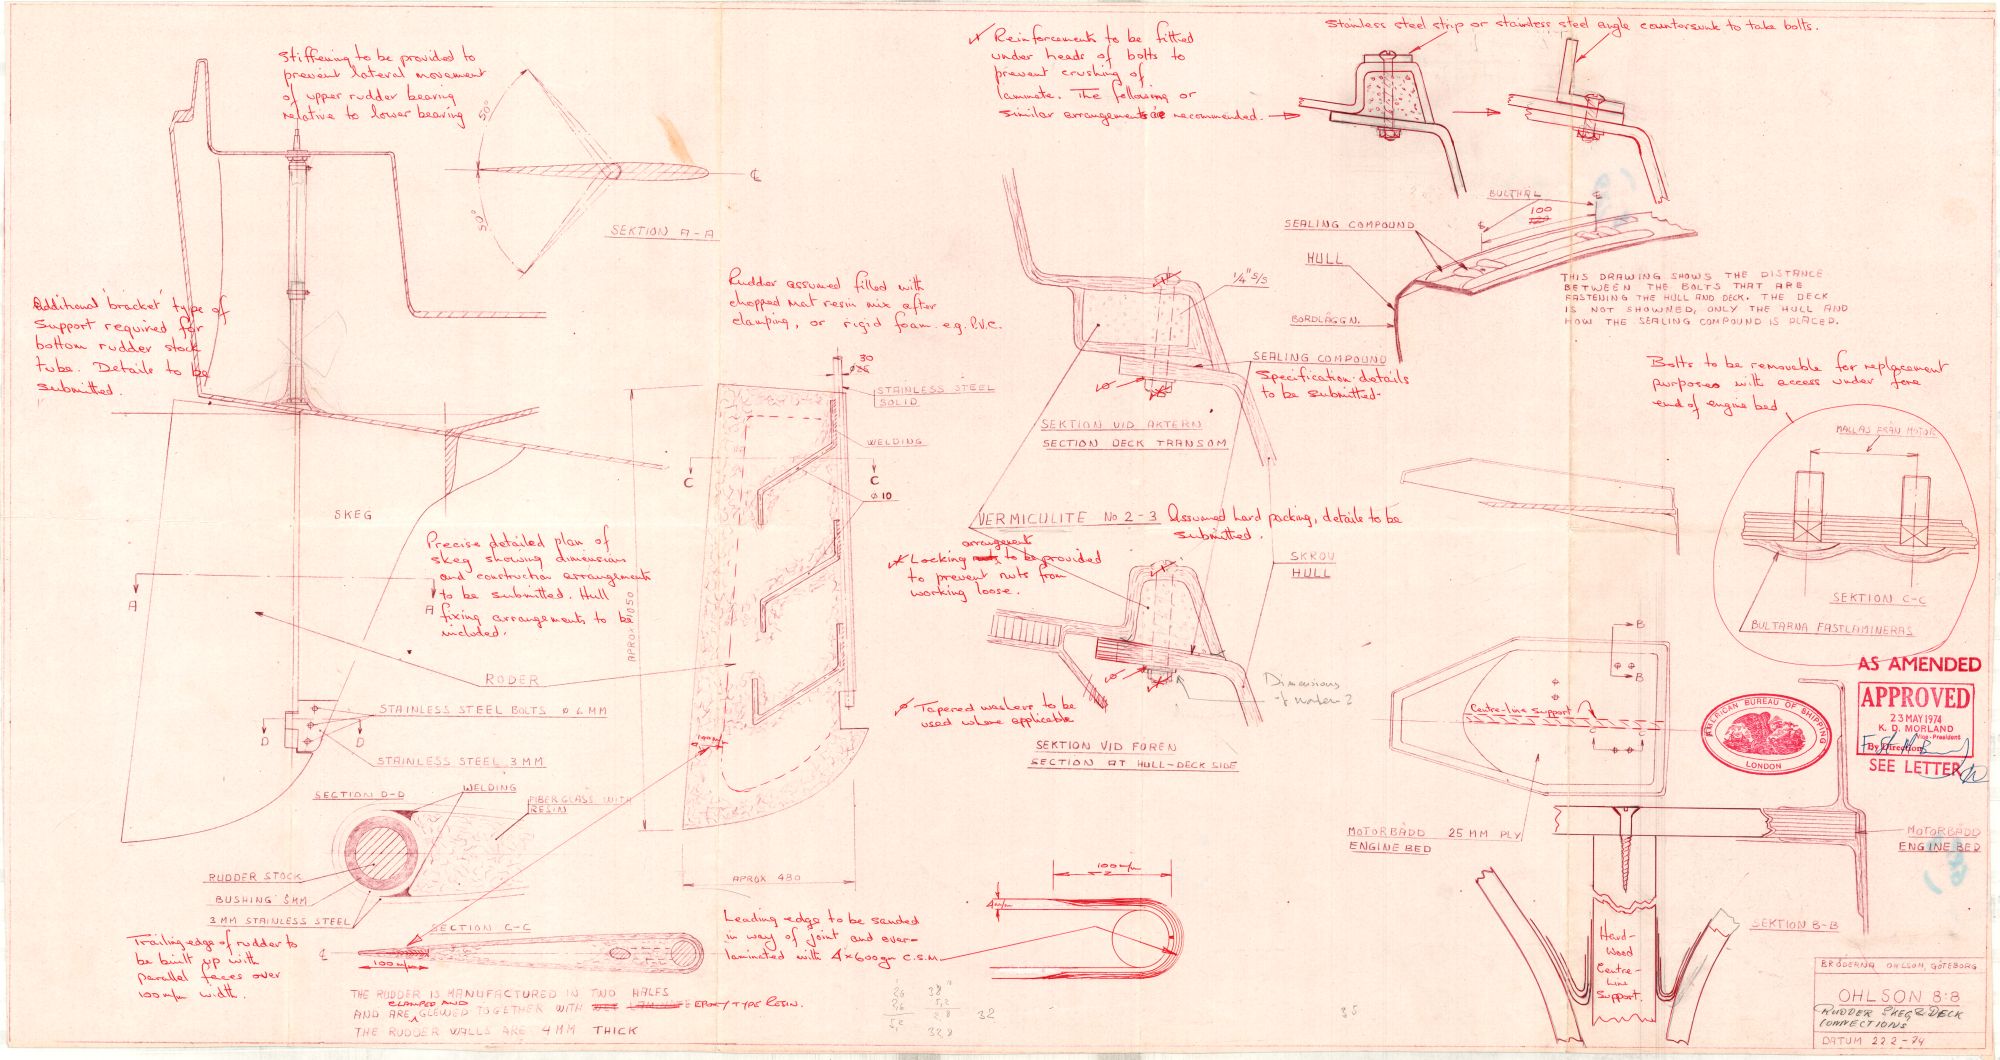 Stiffening to be provided to
prevent lateral movement
of upper rudder bearing
relative to lower bearing
50°
50°
℄
SEKTION A-A
Additional 'bracket' type of
Support required for
bottom rudder stock
tube. Details to be
submitted.
Rudder assumed filled with
chopped mat resin mix after
clamping, or rigid foam e.g. P.V.C.
✓ Reinforcements to be fitted
under heads of bolts to
prevent crushing of
laminate. The following or
similar arrangements are recommended.
Stainless steel strip or stainless steel angle countersunk to take bolts.
BULTHÅL
100
℄
℄
SEALING COMPOUND
HULL
BORDLÄGGN.
THIS DRAWING SHOWS THE DISTANCE
BETWEEN THE BOLTS THAT ARE
FASTENING THE HULL AND DECK. THE DECK
IS NOT SHOWNED, ONLY THE HULL AND
HOW THE SEALING COMPOUND IS PLACED.
1/4" S/S
SEALING COMPOUND
Specification details
to be submitted.
SEKTION VID AKTERN
SECTION DECK TRANSOM
30
STAINLESS STEEL
SOLID
WELDING
C
C
ø 10
VERMICULITE No 2-3 Assumed hard packing, details to be
submitted.
arrangement
Locking nuts to be provided
to prevent nuts from
working loose.
SKROV
HULL
Bolts to be removable for replacement
purposes with access under fore
end of engine bed
MALLAS FRÅN MOTOR
SEKTION C-C
BULTARNA FASTLAMINERAS
SKEG
Precise detailed plan of
skeg showing dimension
and construction arrangements
to be submitted. Hull
fixing arrangements to be
included.
A
A
APROX 1050
RODER
STAINLESS STEEL BOLTS ø 6 MM
D
D
STAINLESS STEEL 3 MM
100 m/m
ø Tapered washers to be
used where applicable
Dimensions
SEKTION VID FÖREN
SECTION AT HULL-DECK SIDE
B
B
Centre-line Support
AS AMENDED
APPROVED
23 MAY 1974
K. D. MORLAND
Vice-President
By Direction
SEE LETTER
AMERICAN BUREAU OF SHIPPING
LONDON
MOTORBÄDD 25 MM PLY
ENGINE BED
MOTORBÄDD
ENGINE BED
SECTION D-D
WELDING
FIBERGLASS WITH
RESIN
RUDDER STOCK
BUSHING 5MM
3 MM STAINLESS STEEL
APROX 480
Trailing edge of rudder to
be built up with
parallel faces over
100 m/m width.
SECTION C-C
℄
100 m/m
Leading edge to be sanded
in way of joint and over-
laminated with 4 x 600 gm C.S.M.
100 m/m
4 m/m
THE RUDDER IS MANUFACTURED IN TWO HALFS
CLAMPED AND
AND ARE GLEWED TOGETHER WITH EPOXY TYPE RESIN.
THE RUDDER WALLS ARE 4 MM THICK
26
26
5,2
38"
5,2
32,8
32
35
Hard-
wood
Centre-
Line
Support.
SEKTION B-B
BRÖDERNA OHLSON, GÖTEBORG
OHLSON 8:8
RUDDER SKEG & DECK
CONNECTIONS
DATUM 22 2-74